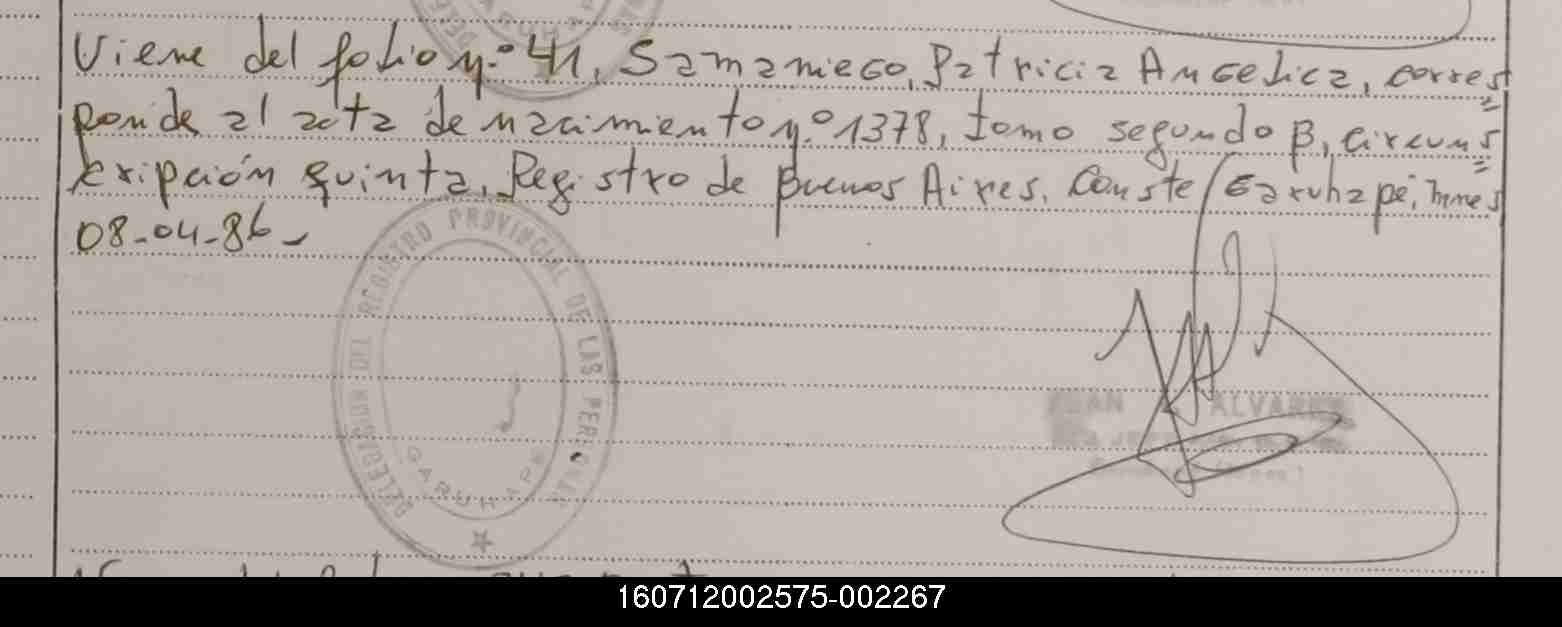 Viene del folio n.º 41, Samaniego, Patricia Angelica, corres=
ponde al acta de nacimiento n.º 1378, tomo segundo B, circuns=
cripción quinta, Registro de Buenos Aires. Conste/Garuhapé, Mnes
08-04-86-
DELEGACION DEL REGISTRO PROVINCIAL DE LAS PERSONAS
GARUHAPE
JUAN ALVAREZ
160712002575-002267